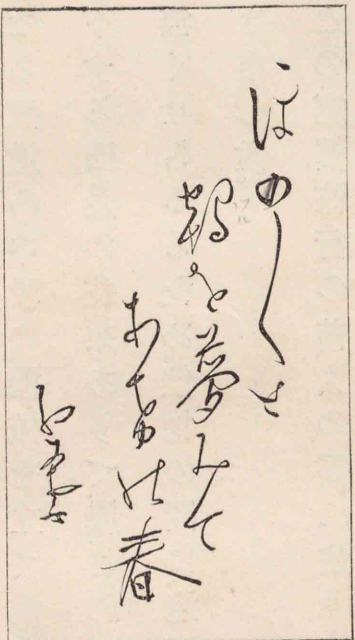 ほの〱と
鶴を夢みて
あけの春